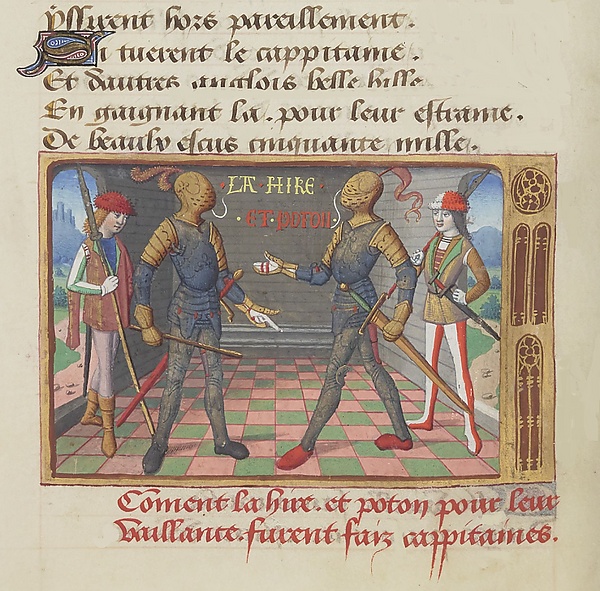 yssirent hors pareillement.
Si tuerent le cappitaine.
Et dautres anglois belle kille
En gaignant la. pour leur estraine.
De beaulx escus cinquante mille.
LA HIRE
ET POTON
Coment la hire. et poton pour leur
vaillance. furent faiz cappitaines.